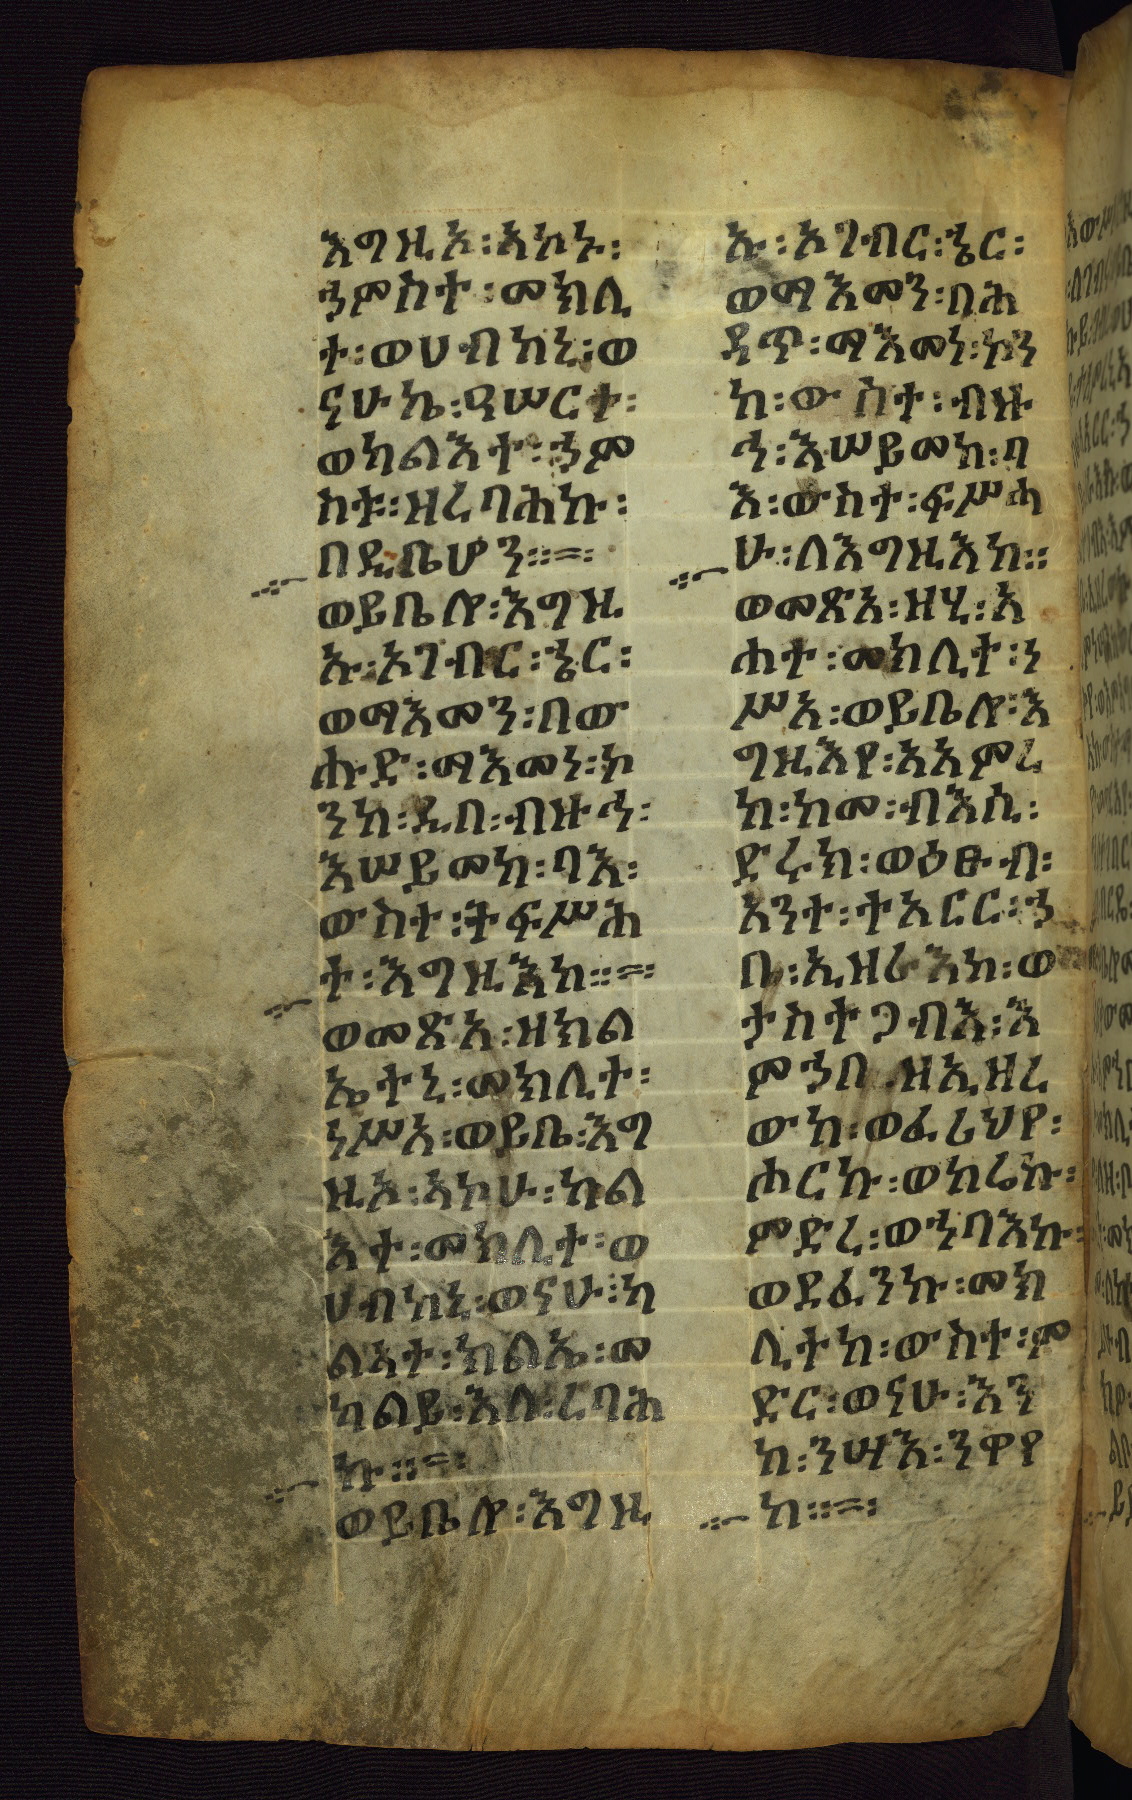 እግዚኦ፡አኮኑ፡
ኃምስተ፡መክሊ
ተ፡ወሀብከኒ፡ወ
ናሁኬ፡ዓሠርተ፡
ወካልእተ፡ኃም
ስተ፡ዘረባሕኩ፡
በዲቤሆን፡፡=፡
ወይቤሎ፡እግዚ
ኡ፡ኦገብር፡ኄር፡
ወማእመን፡በው
ሑድ፡ማእመነ፡ኮ
ንከ፡ዲበ፡ብዙኅ፡
እሠይመከ፡ባእ፡
ውስተ፡ትፍሥሕ
ተ፡እግዚእከ፡፡=፡
ወመጽአ፡ዘክል
ኤተኒ፡መክሊተ፡
ነሥአ፡ወይቤ፡እግ
ዚኦ፡አኮሁ፡ክል
እተ፡መክሊተ፡ወ
ሀብከኒ፡ወናሁ፡ካ
ልአተ፡ክልኤ፡መ
ካልይ፡እለ፡ረባሕ
ኩ፡፡=፡
ወይቤሎ፡እግዚ
ኡ፡ኦገብር፡ኄር፡
ወማእመን፡በሕ
ዳጥ፡ማእመነ፡ኮን
ከ፡ውስተ፡ብዙ
ኅ፡እሠይመከ፡ባ
እ፡ውስተ፡ፍሥሓ
ሁ፡ለእግዚእከ፡፡
ወመጽአ፡ዘሂ፡አ
ሐተ፡መክሊተ፡ነ
ሥአ፡ወይቤሎ፡እ
ግዚእየ፡አአምረ
ከ፡ከመ፡ብእሲ፡
ድሩክ፡ወዕፁብ፡
አንተ፡ተአርር፡ኃ
በ፡ኢዘራእከ፡ወ
ታስተጋብእ፡እ
ምኃበ፡ዘኢዘረ
ውከ፡ወፈሪህየ፡
ሐርኩ፡ወከሬኩ፡
ምድረ፡ወኀባእኩ፡
ወደፈንኩ፡መክ
ሊተከ፡ውስተ፡ም
ድር፡ወናሁ፡እን
ከ፡ንሣእ፡ንዋየ
ከ፡፡=፡